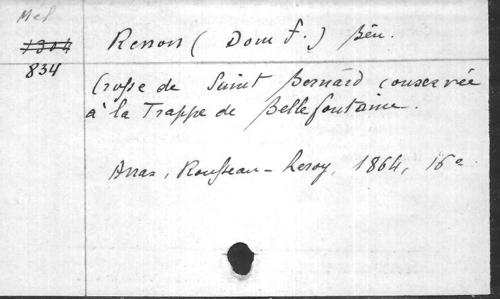 Mel
1304
834
Renon (Dom F.) Bén.
Crosse de Saint Bernard conservée
à la Trappe de Bellefontaine.
Arras, Rousseau-Leroy, 1864, 16°.